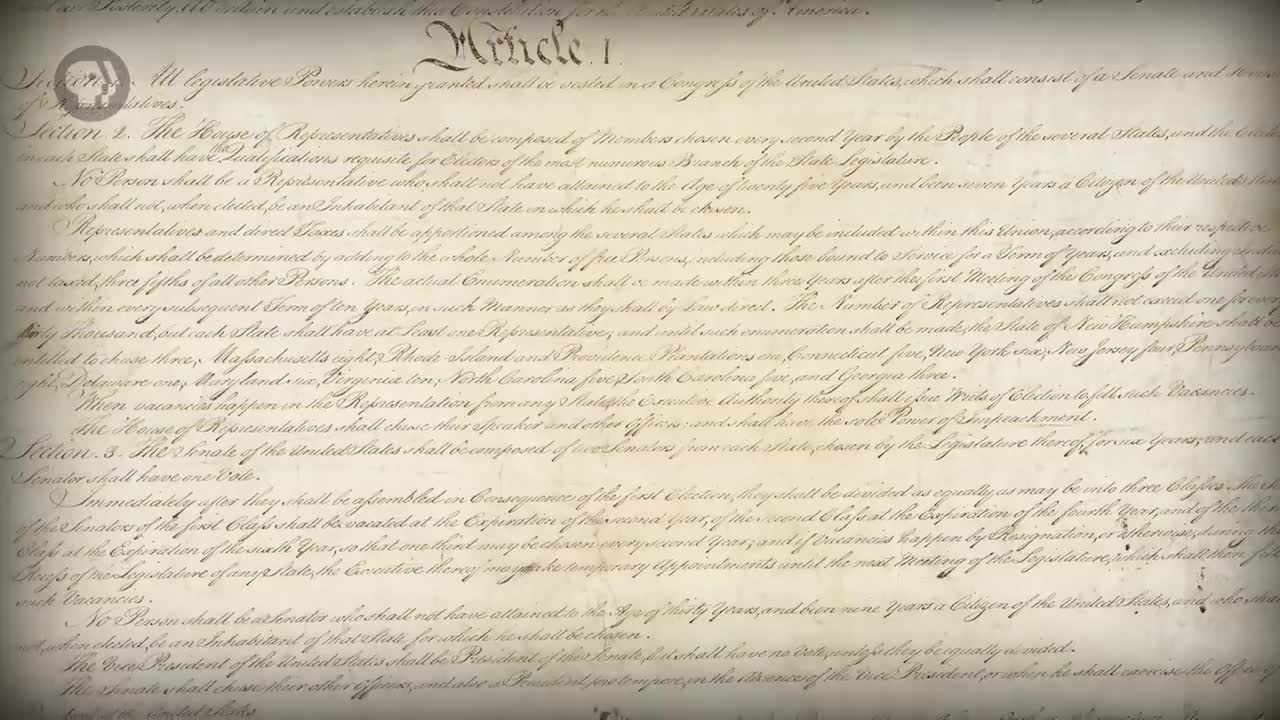 our Posterity, do ordain and establish this Constitution for the United States of America.
Article. I.
Section. 1. All legislative Powers herein granted shall be vested in a Congress of the United States, which shall consist of a Senate and House
of Representatives.
Section. 2. The House of Representatives shall be composed of Members chosen every second Year by the People of the several States, and the Electors
in each State shall have the Qualifications requisite for Electors of the most numerous Branch of the State Legislature.
No Person shall be a Representative who shall not have attained to the Age of twenty five Years, and been seven Years a Citizen of the United States,
and who shall not, when elected, be an Inhabitant of that State in which he shall be chosen.
Representatives and direct Taxes shall be apportioned among the several States which may be included within this Union, according to their respective
Numbers, which shall be determined by adding to the whole Number of free Persons, including those bound to Service for a Term of Years, and excluding Indians
not taxed, three fifths of all other Persons. The actual Enumeration shall be made within three Years after the first Meeting of the Congress of the United States,
and within every subsequent Term of ten Years, in such Manner as they shall by Law direct. The Number of Representatives shall not exceed one for every
thirty Thousand, but each State shall have at Least one Representative; and until such enumeration shall be made, the State of New Hampshire shall be
entitled to chuse three, Massachusetts eight, Rhode-Island and Providence Plantations one, Connecticut five, New-York six, New Jersey four, Pennsylvania
eight, Delaware one, Maryland six, Virginia ten, North Carolina five, South Carolina five, and Georgia three.
When vacancies happen in the Representation from any State, the Executive Authority thereof shall issue Writs of Election to fill such Vacancies.
The House of Representatives shall chuse their Speaker and other Officers; and shall have the sole Power of Impeachment.
Section. 3. The Senate of the United States shall be composed of two Senators from each State, chosen by the Legislature thereof, for six Years; and each
Senator shall have one Vote.
Immediately after they shall be assembled in Consequence of the first Election, they shall be divided as equally as may be into three Classes. The
of the Senators of the first Class shall be vacated at the Expiration of the second Year, of the second Class at the Expiration of the fourth Year, and of the third
Class at the Expiration of the sixth Year, so that one third may be chosen every second Year; and if Vacancies happen by Resignation, or otherwise, during the
Recess of the Legislature of any State, the Executive thereof may make temporary Appointments until the next Meeting of the Legislature, which shall then fill
such Vacancies.
No Person shall be a Senator who shall not have attained to the Age of thirty Years, and been nine Years a Citizen of the United States, and who shall
not, when elected, be an Inhabitant of that State for which he shall be chosen.
The Vice President of the United States shall be President of the Senate, but shall have no Vote, unless they be equally divided.
The Senate shall chuse their other Officers, and also a President pro tempore, in the Absence of the Vice President, or when he shall exercise the Office of
of the United States